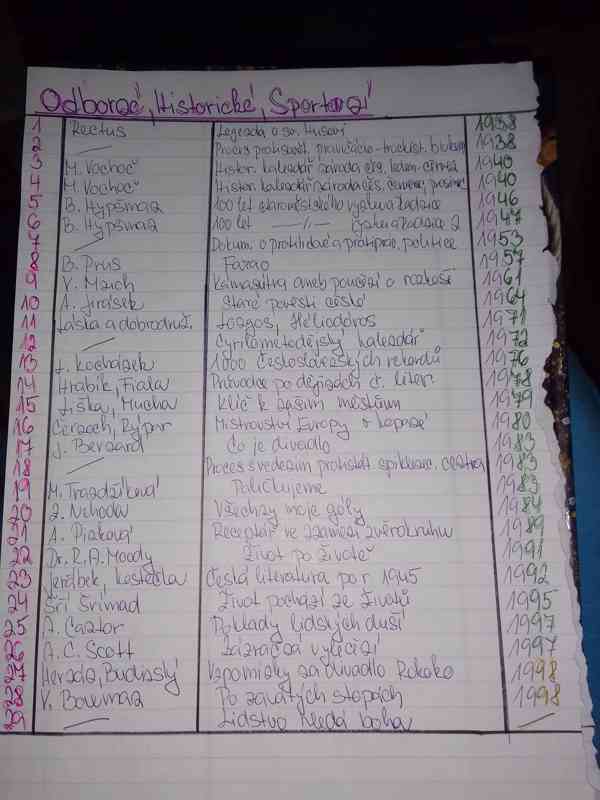 Odborné, Historické, Sportovní
1 Rectus Legenda o sv. Husovi 1938
2 — Proces protisovět. pravičácko-trockist. blokem 1938
3 M. Vochoč Histor. kalendář národa čes. leden. červen 1940
4 M. Vochoč Histor. kalendář národa čes. červenec, prosinec 1940
5 B. Hypšman 100 let staroměstského výstavu radnice 1946
6 B. Hypšman 100 let —//— radnice 2 1947
7 — Dokum. o protilidové a protinár. politice 1953
8 B. Prus Farao 1957
9 V. Mach Kamasutra aneb poučení o rozkoši 1961
10 A. Jirásek Staré pověsti české 1964
11 Láska a dobrodruž. Longos, Héliodóros 1971
12 — Cyrilometodějský kalendář 1972
13 J. Kochánek 1000 Československých rekordů 1976
14 Hrabík, Fiala Průvodce po dějinách č. liter. 1978
15 Liška, Mucha Klíč k našim městům 1979
16 Černoch, Rýpar Mistrovství Evropy v kopané 1980
17 J. Bernard Co je divadlo 1983
18 — Proces s vedením protistát. spiklenec. centra 1983
19 M. Trandžíková Paličkujeme 1983
20 Z. Nehoda Všechny moje góly 1984
21 A. Pixová Receptář ve znamení zvěrokruhu 1989
22 Dr. R.A. Moody Život po životě 1991
23 Jeřábek, Česká literatura po r 1945 1992
24 Šrí Šrímad Život pochází ze života 1995
25 A. Castor Poklady lidských duší 1997
26 A. C. Scott Zázračná vyléčení 1997
27 Herzán, Budinský Vzpomínky na divadlo Rokoko 1998
28 V. Bowman Po zavátých stopách 1998
29 — Lidstvo hledá boha —